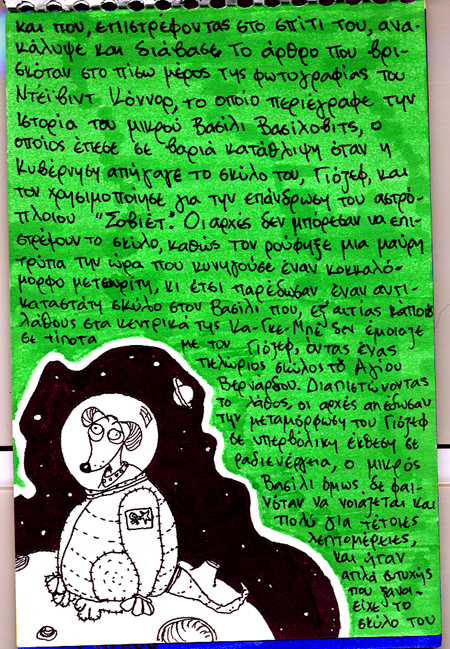 και που, επιστρέφοντας στο σπίτι του, ανα-
κάλυψε και διάβασε το άρθρο που βρι-
σκόταν στο πίσω μέρος της φωτογραφίας του
Ντέιβιντ Κόννορ, το οποίο περιέγραφε την
Ιστορία του μικρού Βασίλι Βασίλοβιτς, ο
οποίος έπεσε σε βαριά κατάθλιψη όταν η
κυβέρνηση απήγαγε το σκύλο του, Γιόζεφ, και
τον χρησιμοποίησε για την επάνδρωση του αστρό-
πλοιου "Σοβιέτ". Οι αρχές δεν μπόρεσαν να επι-
στρέψουν το σκύλο, καθώς τον ρούφηξε μια μαύρη
τρύπα την ώρα που κυνηγούσε έναν κοκκαλό-
μορφο μετεωρίτη, κι έτσι παρέδωσαν έναν αντι-
καταστάτη σκύλο στον Βασίλι που, εξ'αιτίας κάποιου
λάθους στα κεντρικά της Κα-Γκε-Μπέ δεν έμοιαζε
σε τίποτα με τον Γιόζεφ, όντας ένας
πελώριος σκύλος του Αγίου
Βερνάρδου. Διαπιστώνοντας
το λάθος, οι αρχές απέδωσαν
την μεταμόρφωση του Γιόζεφ
σε υπερβολική έκθεση σε
ραδιενέργεια, ο μικρός
Βασίλι όμως δε φαι-
νόταν να νοιάζεται και
πολύ για τέτοιες
λεπτομέρειες,
και ήταν
απλά ευτυχής
που ξανα-
είχε το
σκύλο του